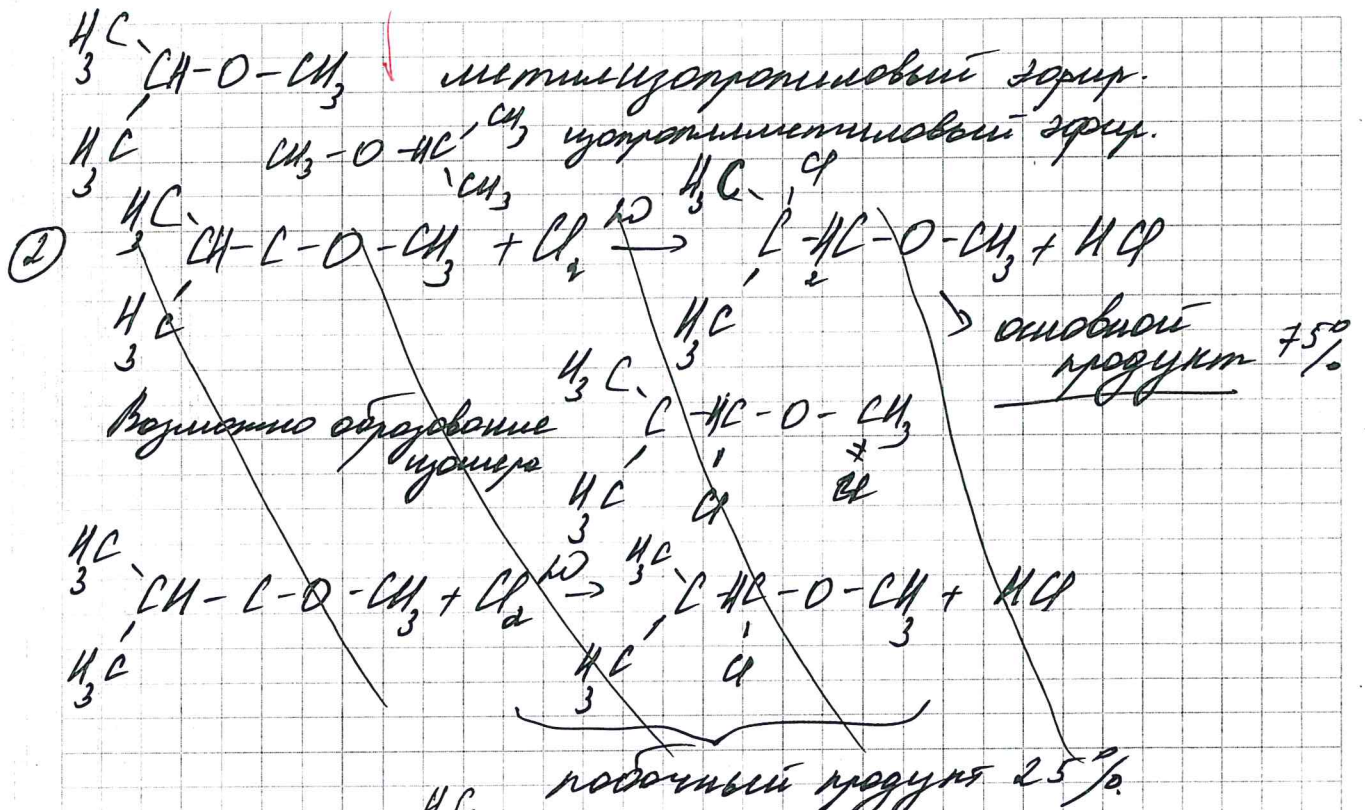 H3C
CH-O-CH3 метилизопропиловый эфир.
H3C CH3-O-HC CH3 изопропилметиловый эфир.
CH3
② H3C CH-C-O-CH3 + Cl2 hν → H3C Cl C-H2C-O-CH3 + HCl
H3C H3C основной продукт 75%
Возможно образование изомера H3C C-HC-O-CH3
H3C Cl
H3C CH-C-O-CH3 + Cl2 hν → H3C C-HC-O-CH3 + HCl
H3C H3C Cl
побочный продукт 25%.
H3C